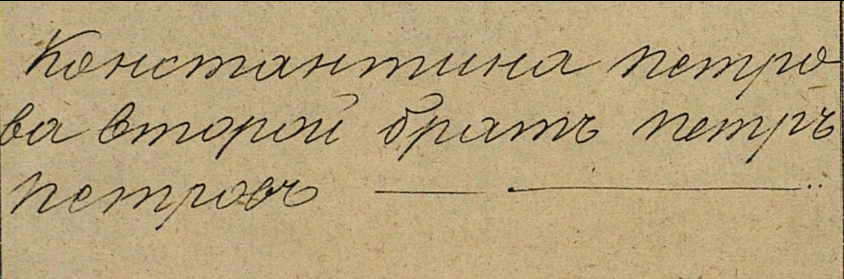 Константина петро
ва второй братъ петръ
петровъ